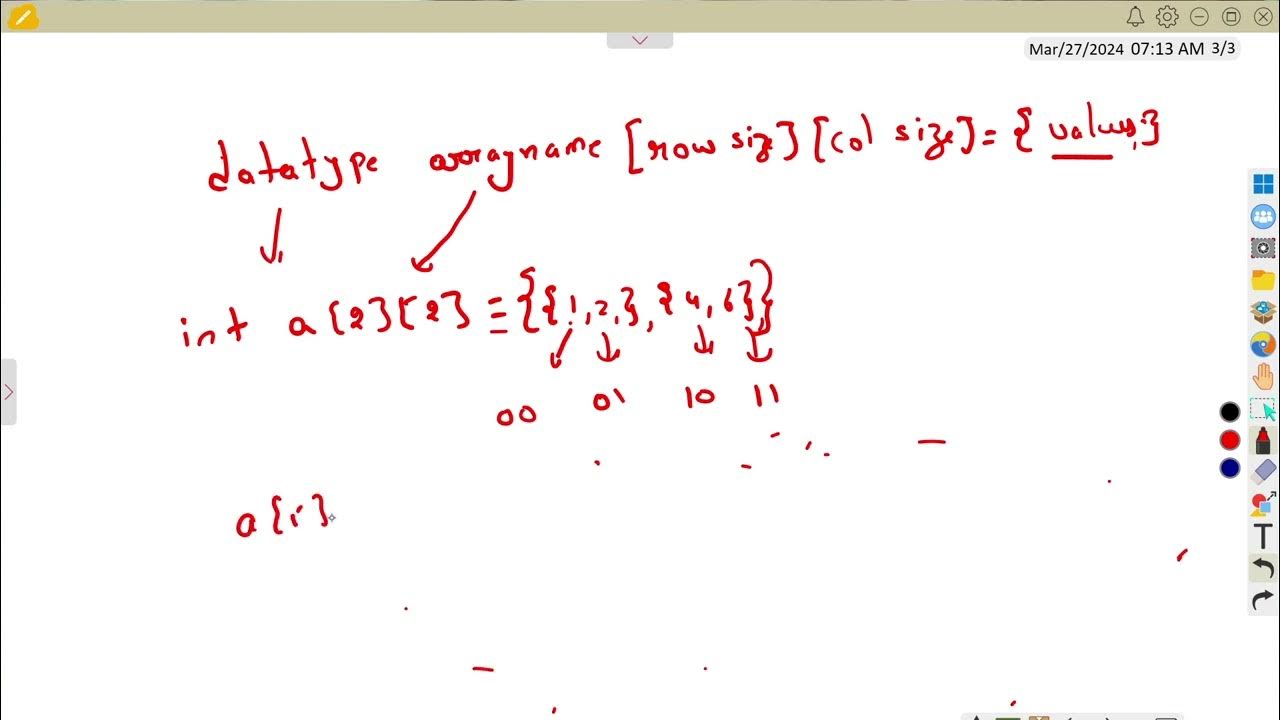 Mar/27/2024 07:13 AM 3/3
datatype arrayname [row size][col size] = { values;}
int a[2][2] = {{1,2,},{4,6}}
00 01 10 11
a[i]
T